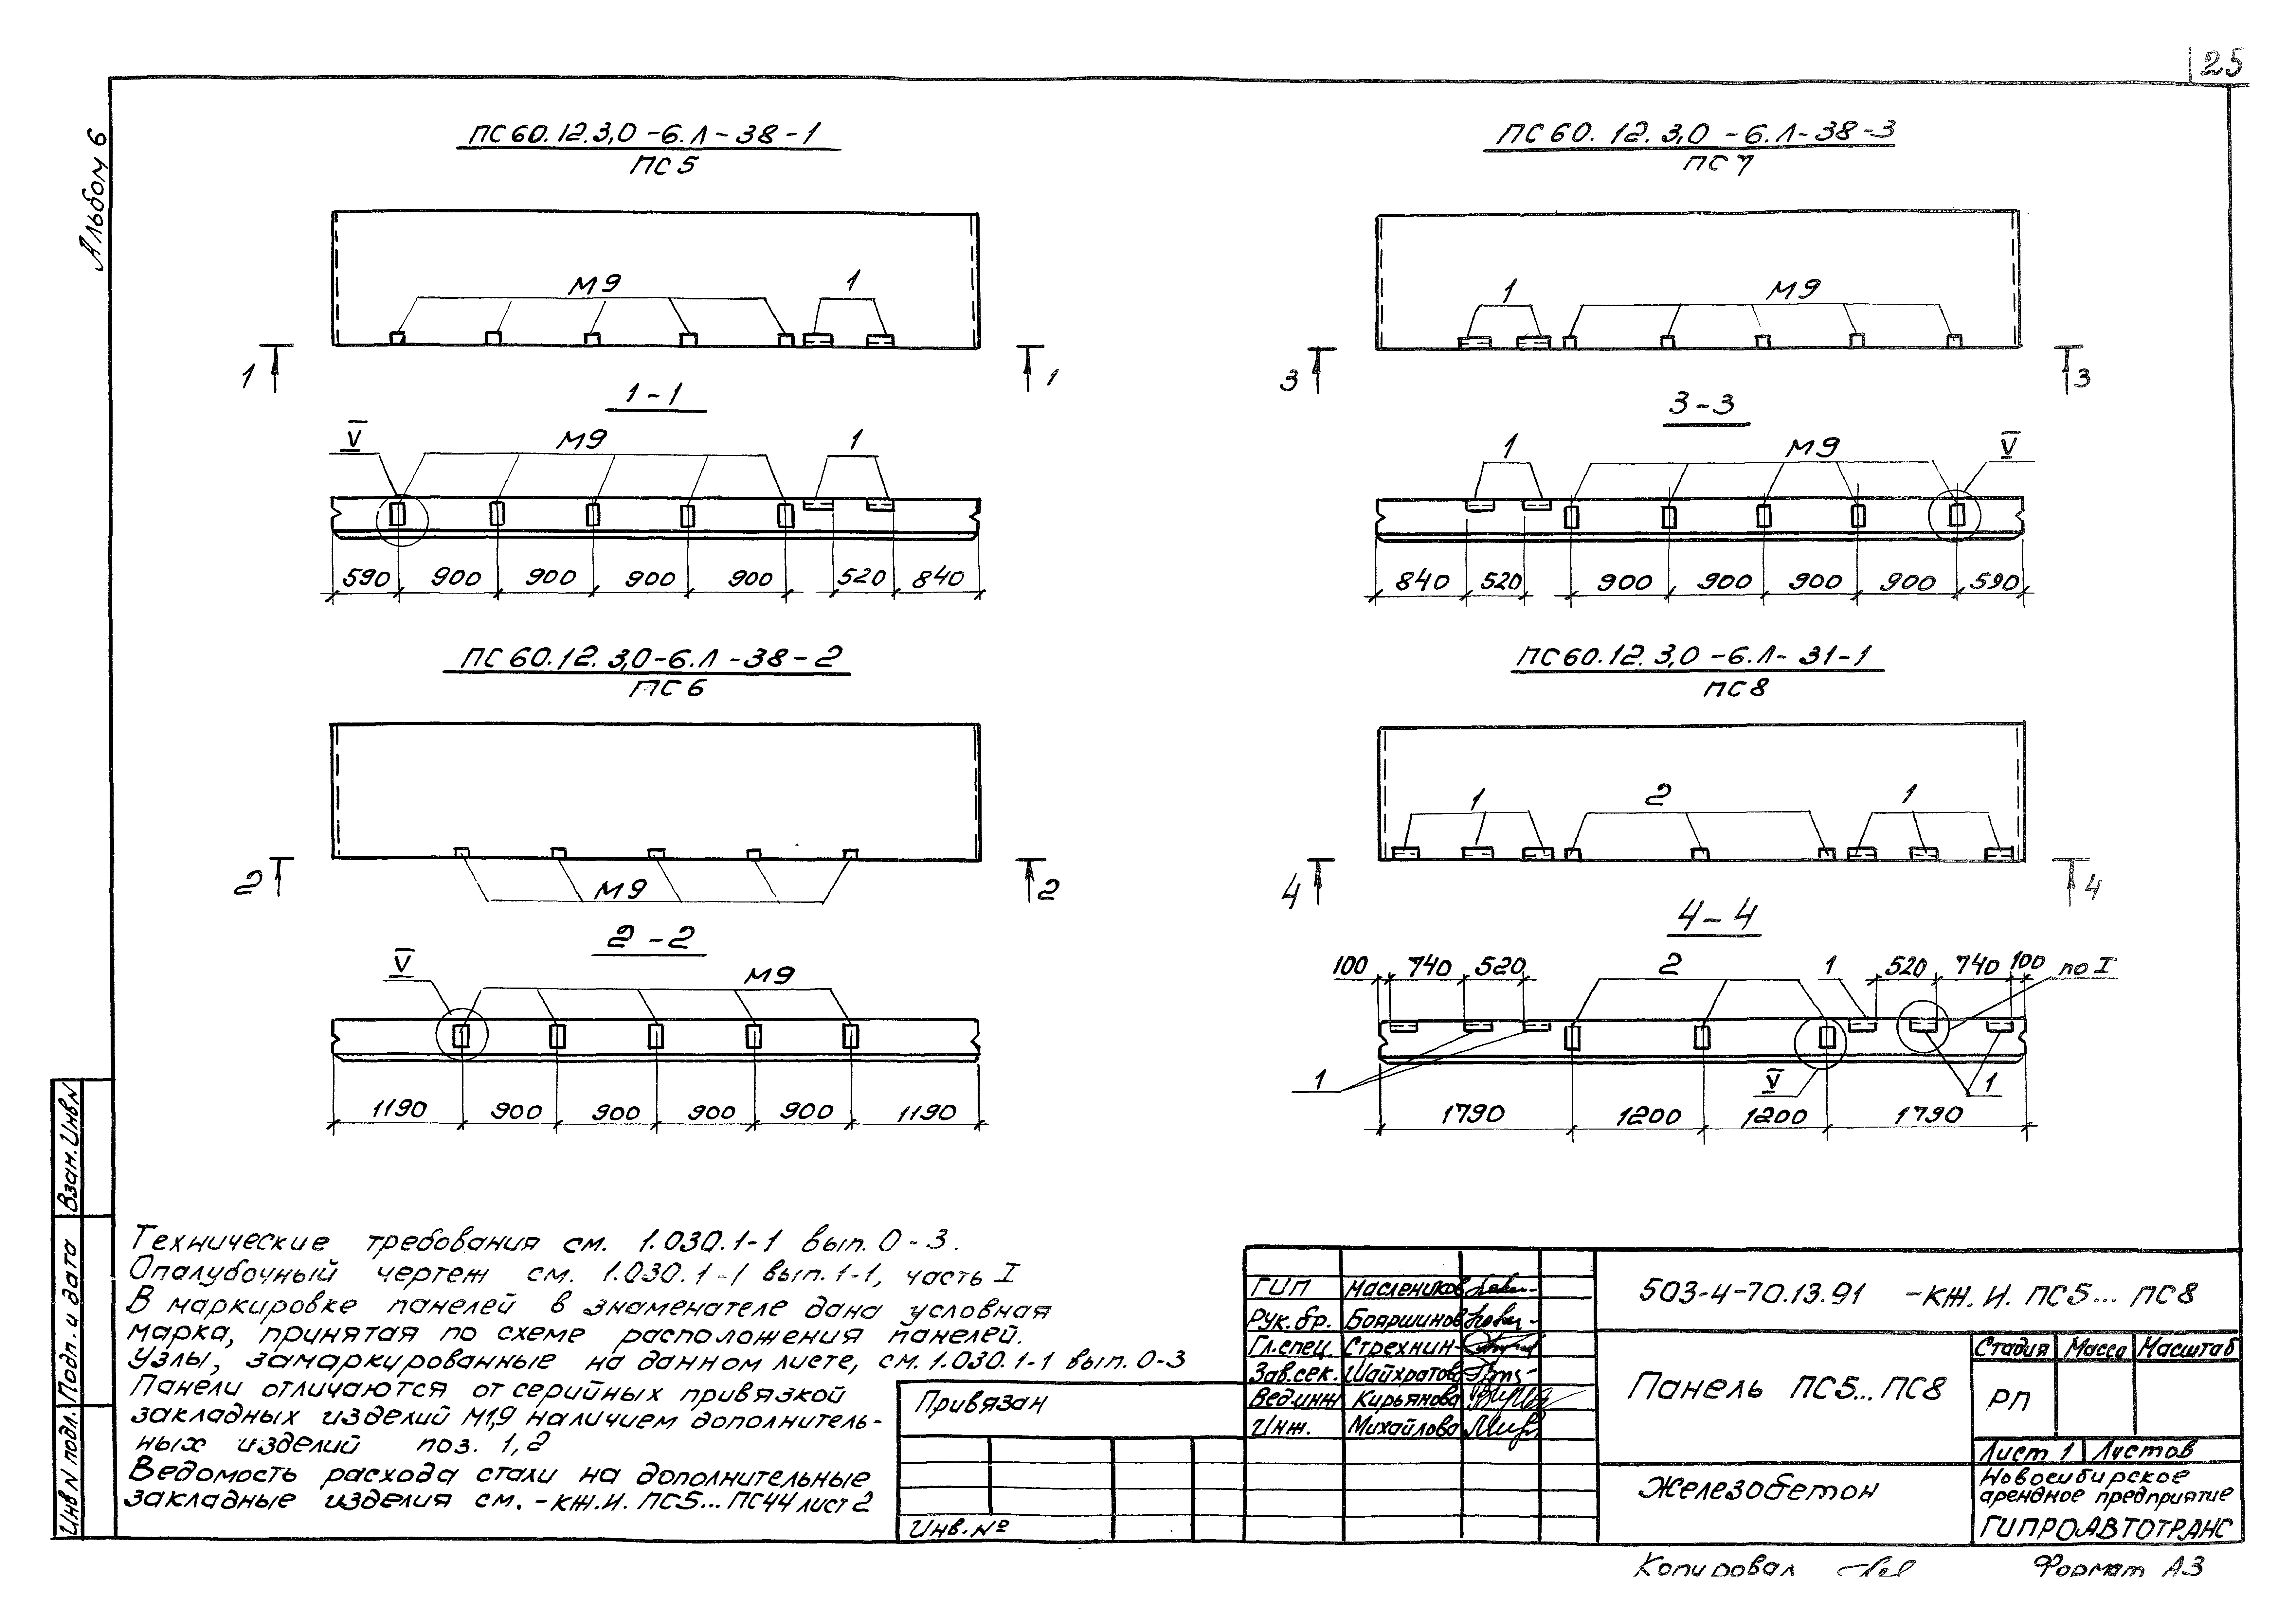 25
Альбом 6
ПС 60.12.3,0-6.Л-38-1
ПС 5
М9
1
1
1
1-1
V
М9
1
590 900 900 900 900 520 840
ПС 60.12.3,0-6.Л-38-3
ПС 7
1
М9
3
3
3-3
1
М9
V
840 520 900 900 900 900 590
ПС 60.12.3,0-6.Л-38-2
ПС 6
М9
2
2
2-2
V
М9
1190 900 900 900 900 1190
ПС 60.12.3,0-6.Л-31-1
ПС 8
1
2
1
4
4
4-4
100 740 520 2 1 520 740 100 по I
1
V
1
1790 1200 1200 1790
Технические требования см. 1.030.1-1 вып. 0-3.
Опалубочный чертеж см. 1.030.1-1 вып. 1-1, часть I
В маркировке панелей в знаменателе дана условная
марка, принятая по схеме расположения панелей.
Узлы, замаркированные на данном листе, см. 1.030.1-1 вып. 0-3
Панели отличаются от серийных привязкой
закладных изделий М1,9 наличием дополнитель-
ных изделий поз. 1,2
Ведомость расхода стали на дополнительные
закладные изделия см. -КЖ.И. ПС5...ПС44 лист 2
Привязан
Инв. №
ГИП Маслеников
Рук. бр. Бояршинов
Гл. спец. Стрехнин
Зав. сек. Шайхратов
Вед. инж Кирьянова
Инж. Михайлова
503-4-70.13.91 -КЖ.И. ПС5... ПС8
Панель ПС5...ПС8
Стадия Масса Масштаб
РП
Лист 1 Листов
Железобетон
Новосибирское
арендное предприятие
ГИПРОАВТОТРАНС
Копировал
Формат А3
Взам. Инв N
Подп. и дата
Инв N подл.